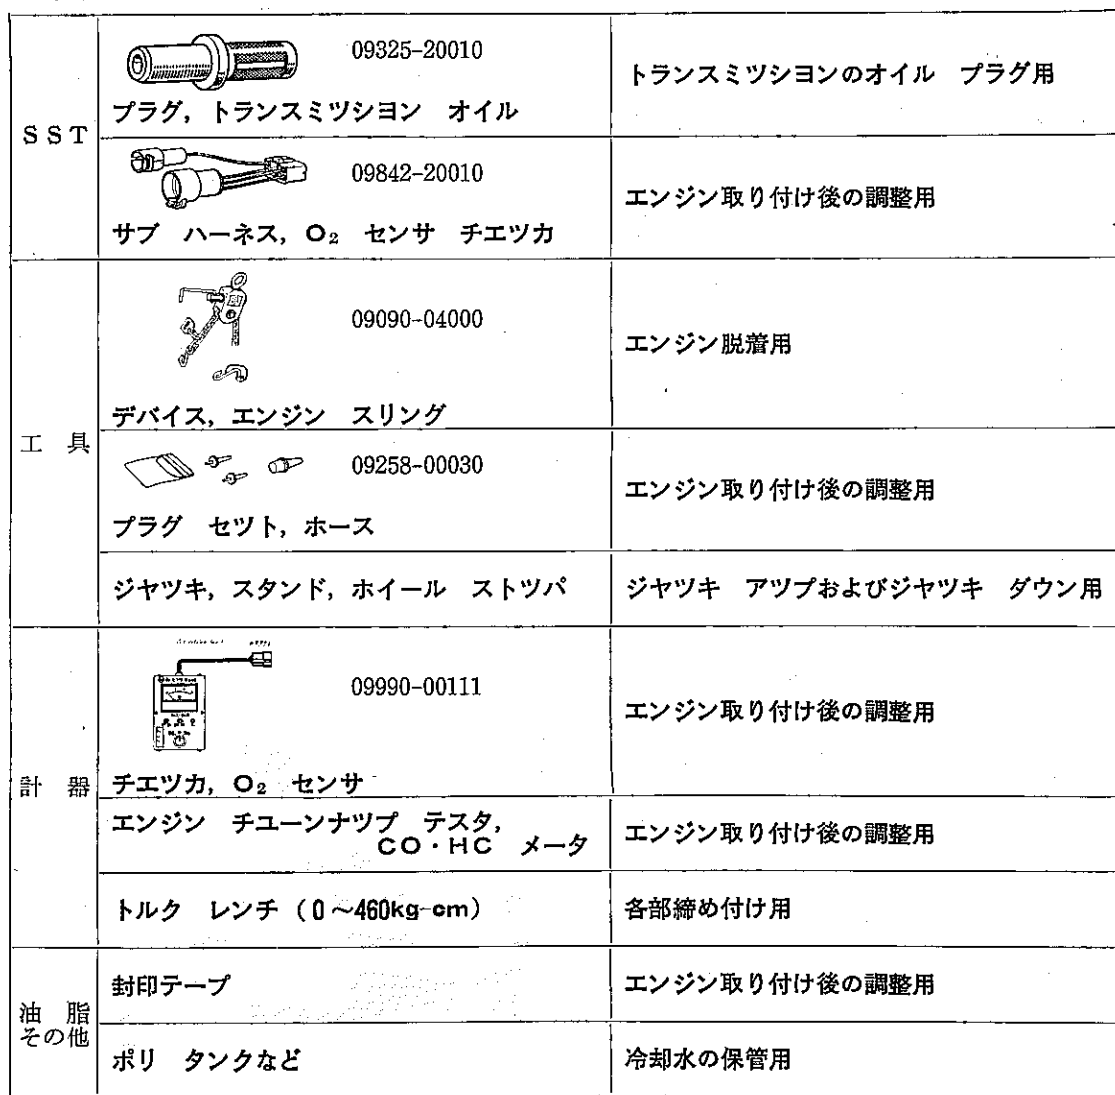 SST
09325-20010
プラグ, トランスミツシヨン オイル
トランスミツシヨンのオイル プラグ用
09842-20010
サブ ハーネス, O₂ センサ チエツカ
エンジン取り付け後の調整用
工 具
09090-04000
デバイス, エンジン スリング
エンジン脱着用
09258-00030
プラグ セツト, ホース
エンジン取り付け後の調整用
ジヤツキ, スタンド, ホイール ストツパ
ジヤツキ アツプおよびジヤツキ ダウン用
計 器
09990-00111
チエツカ, O₂ センサ
エンジン取り付け後の調整用
エンジン チユーンナツプ テスタ,
CO・HC メータ
エンジン取り付け後の調整用
トルク レンチ (0～460kg-cm)
各部締め付け用
油 脂
その他
封印テープ
エンジン取り付け後の調整用
ポリ タンクなど
冷却水の保管用